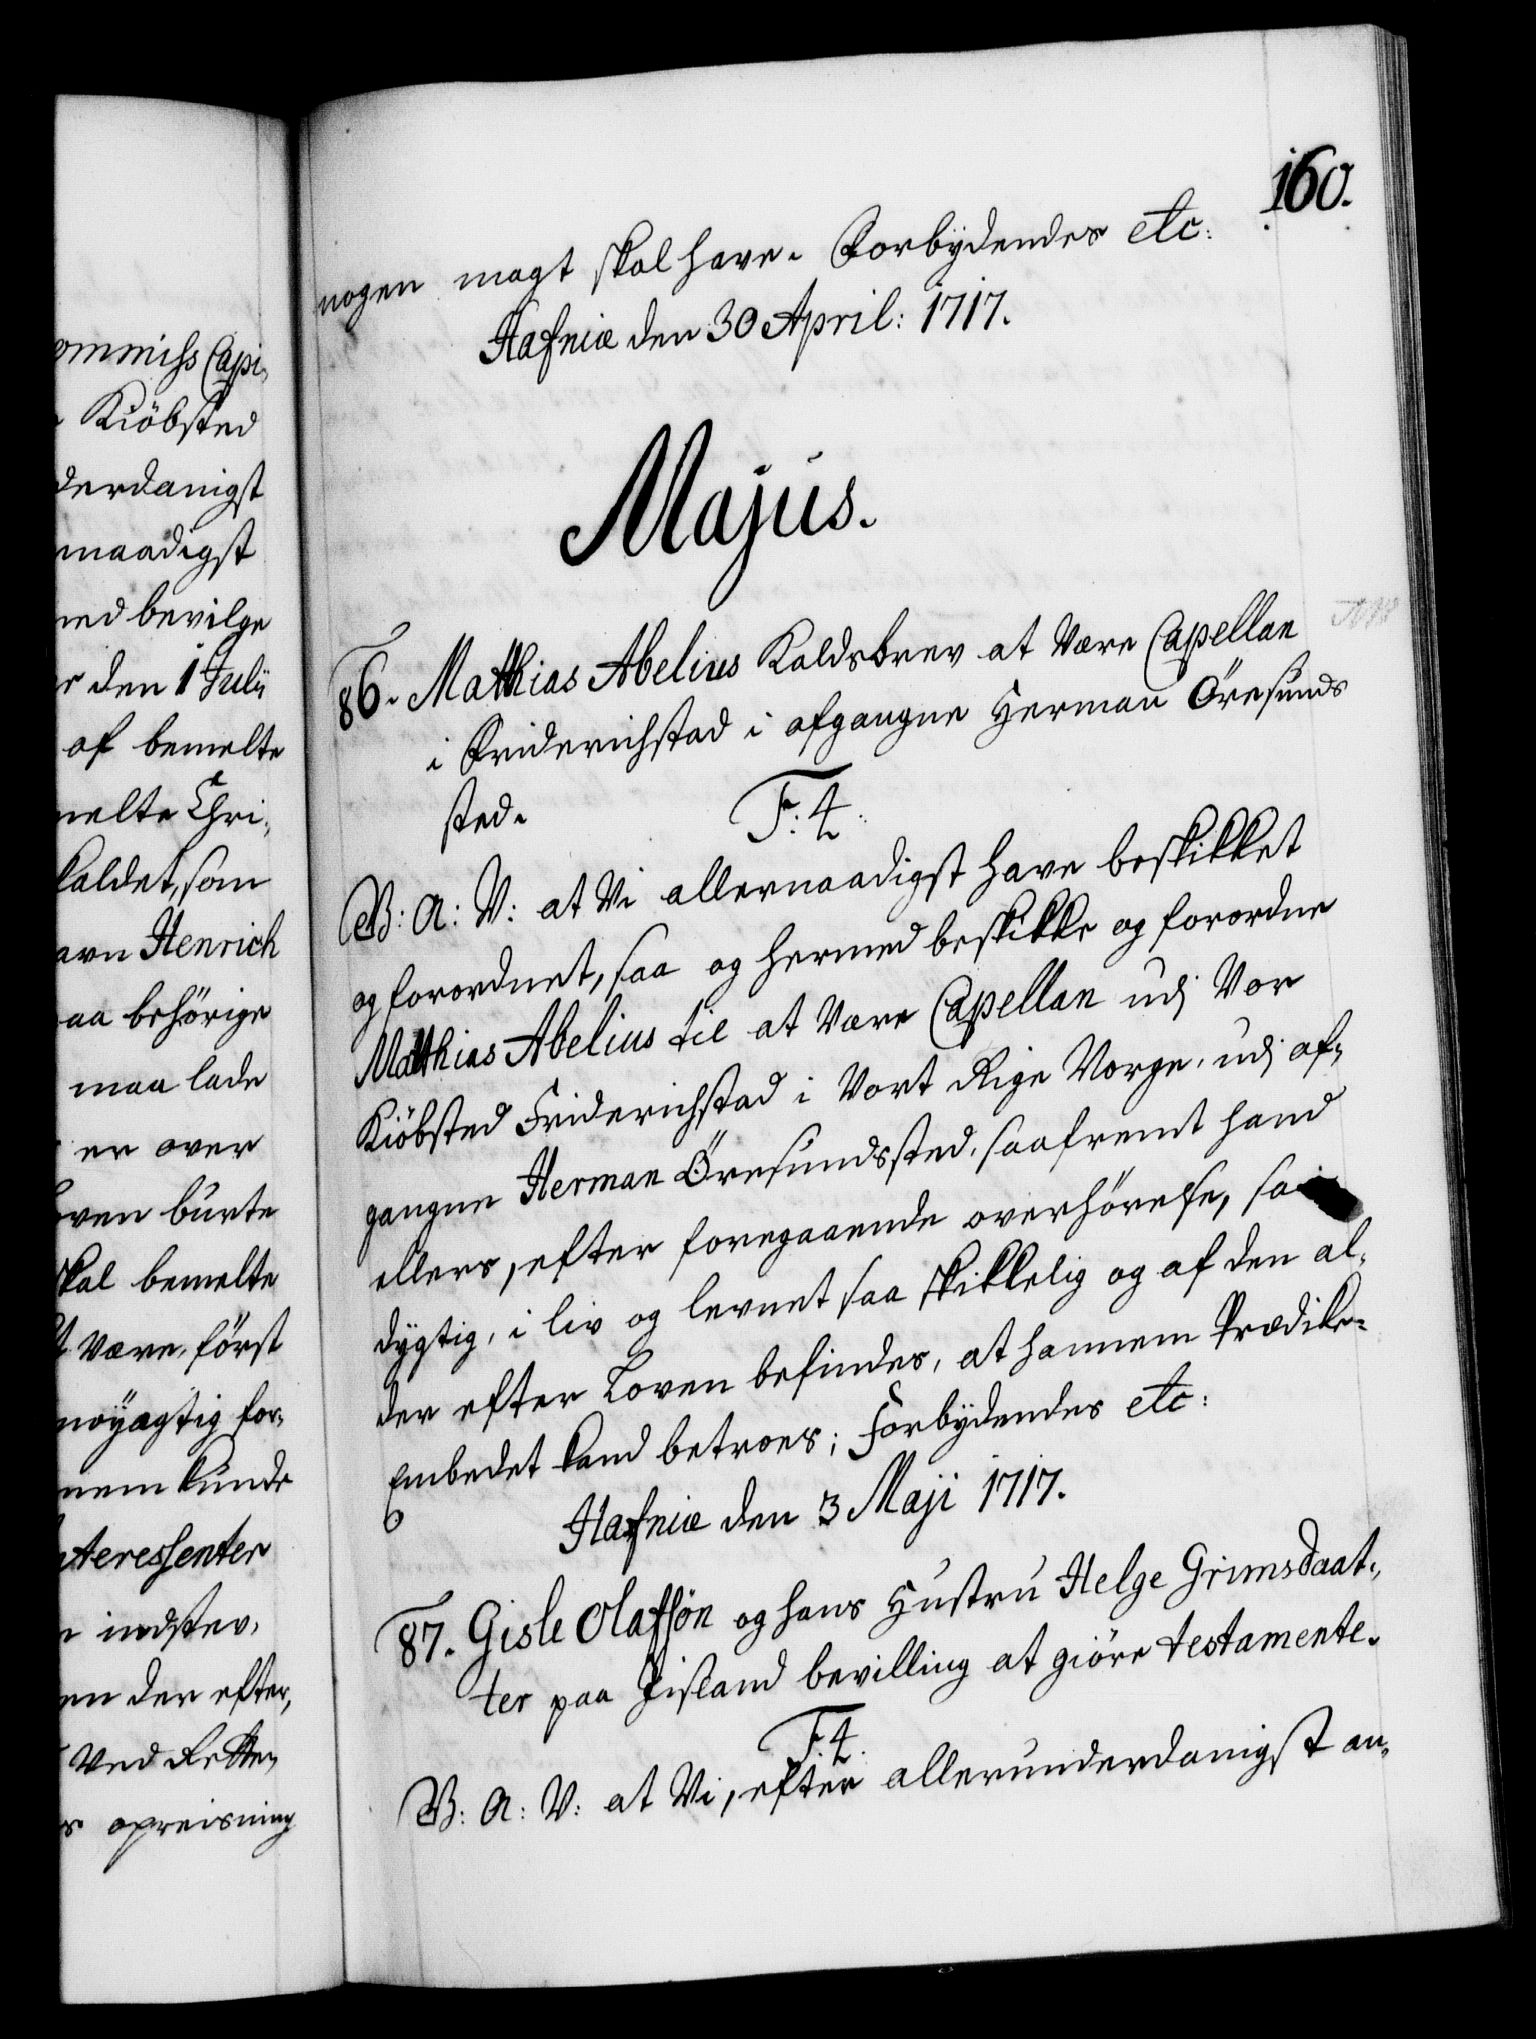 160.
nogen magt skal have. Forbydendes etc:
Hafniæ den 30 April: 1717.
Majus.
86. Matthias Abelius Kaldsbrev at være Capellan
i Friderichstad i afgangne Herman Öresunds
sted.
F: 4.
W: A: V: at Vi allernaadigst have beskikket
og forordnet, saa og hermed beskikke og forordne
Matthias Abelius til at være Capellan udj Vor
Kiöbsted Friderichstad i Vort Rige Norge, udj af-
gangne Herman Öresunds sted, saafremt hand
ellers, efter foregaaende overhörelse, saa
dygtig, i liv og levnet saa skikkelig og af den al-
der efter Loven befindes, at hannem Prædike-
Embedet kand betroes; Forbydendes etc:
Hafniæ den 3 Maji 1717.
87. Gisle Olafsön og hans Hustru Helge Grimsdaat-
ter paa Jisland bevilling at giöre testamente.
F. 4.
W: A: V: at Vi, efter allerunderdanigst an-
ommiss Capi-
Kiöbsted
derdanigst
naadigst
med bevilge
den 1 Julii
af bemelte
melte Chri-
kaldet, som
avn Henrich
aa behörige
maa lade
er over
oven burte
skal bemelte
være, först
nöyagtig for-
nem kunde
nteressenter
indstev-
en der efter,
ved Retten
opreisning